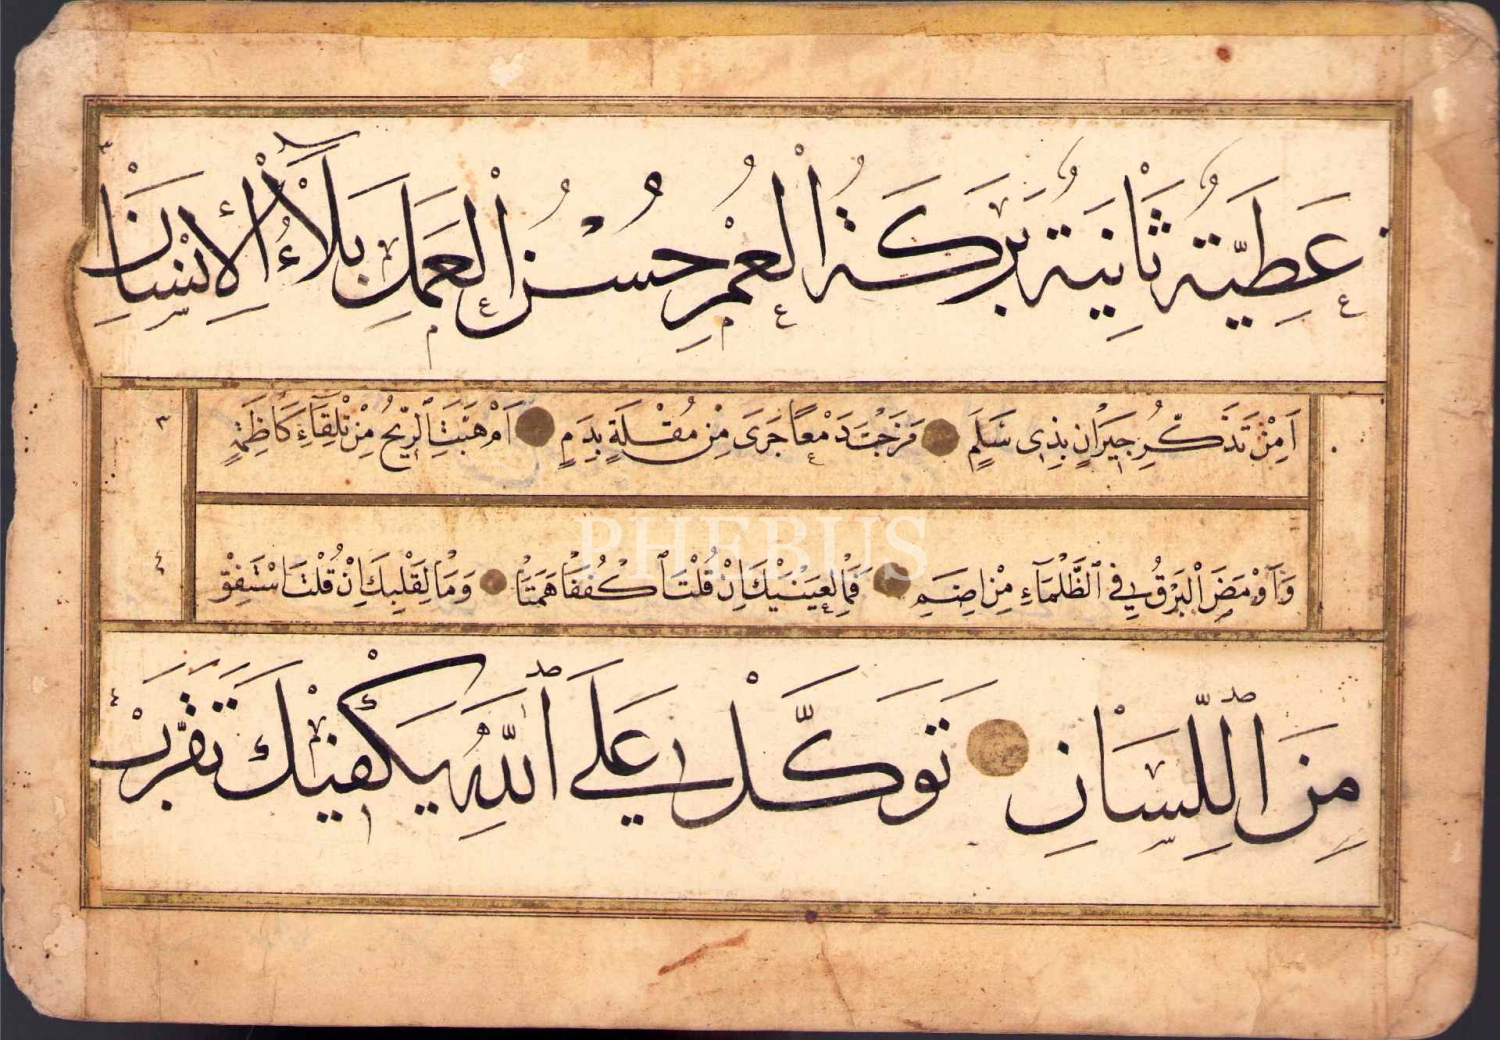 عَطِيَّةٌ ثَانِيَةٌ بَرَكَةُ الْعُمْرِ حُسْنُ الْعَمَلِ بَلَاءُ الْإِنْسَانِ
أَمِنْ تَذَكُّرِ جِيرَانٍ بِذِي سَلَمٍ مَزَجْتَ دَمْعًا جَرَى مِنْ مُقْلَةٍ بِدَمٍ أَمْ هَبَّتِ الرِّيحُ مِنْ تِلْقَاءِ كَاظِمَةٍ
وَأَوْمَضَ الْبَرْقُ فِي الظَّلْمَاءِ مِنْ إِضَمِ فَمَا لِعَيْنَيْكَ إِنْ قُلْتَ اكْفُفَا هَمَتَا وَمَا لِقَلْبِكَ إِنْ قُلْتَ اسْتَفِقْ
مِنَ اللِّسَانِ تَوَكَّلْ عَلَى اللهِ يَكْفِيكَ
PHEBUS